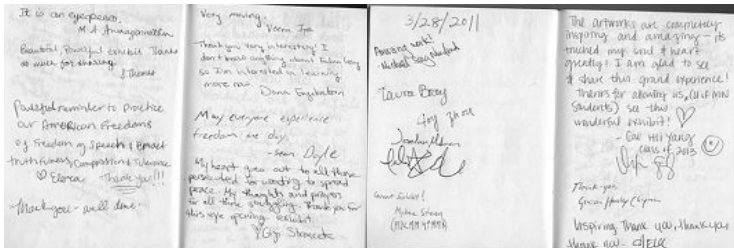 It is an eyeopener.
Beautiful, Powerful exhibit. Thanks
so much for sharing.
J Thomas
Powerful reminder to Practice
our American Freedoms
of Freedom of Speech &
truthfulness, Compassion & Tolerance
♡ Elora Thank you!!!
Thank you - well done!
Very moving.
Thank you very interesting! I
don't know anything about Falun Gong
so I'm interested in learning
more now. Dana
May everyone experience
freedom one day.
- Sean Doyle
My heart goes out to all those
persecuted for wanting to spread
peace. My thoughts and prayers
for all those struggling. Thank you for
this eye opening exhibit.
3/28/2011
Amazing work!
Laura Bray
Joy Zhou
Great Exhibit!
The artworks are completely
inspiring and amazing - its
touched my soul & heart
greatly! I am glad to see
& share this grand experience!
Thanks for allowing us, (U of MN
Students) see this
wonderful exhibit! ♡
Yang
class of 2013
Thank-you
Inspiring. Thank you, thank you
thank you -